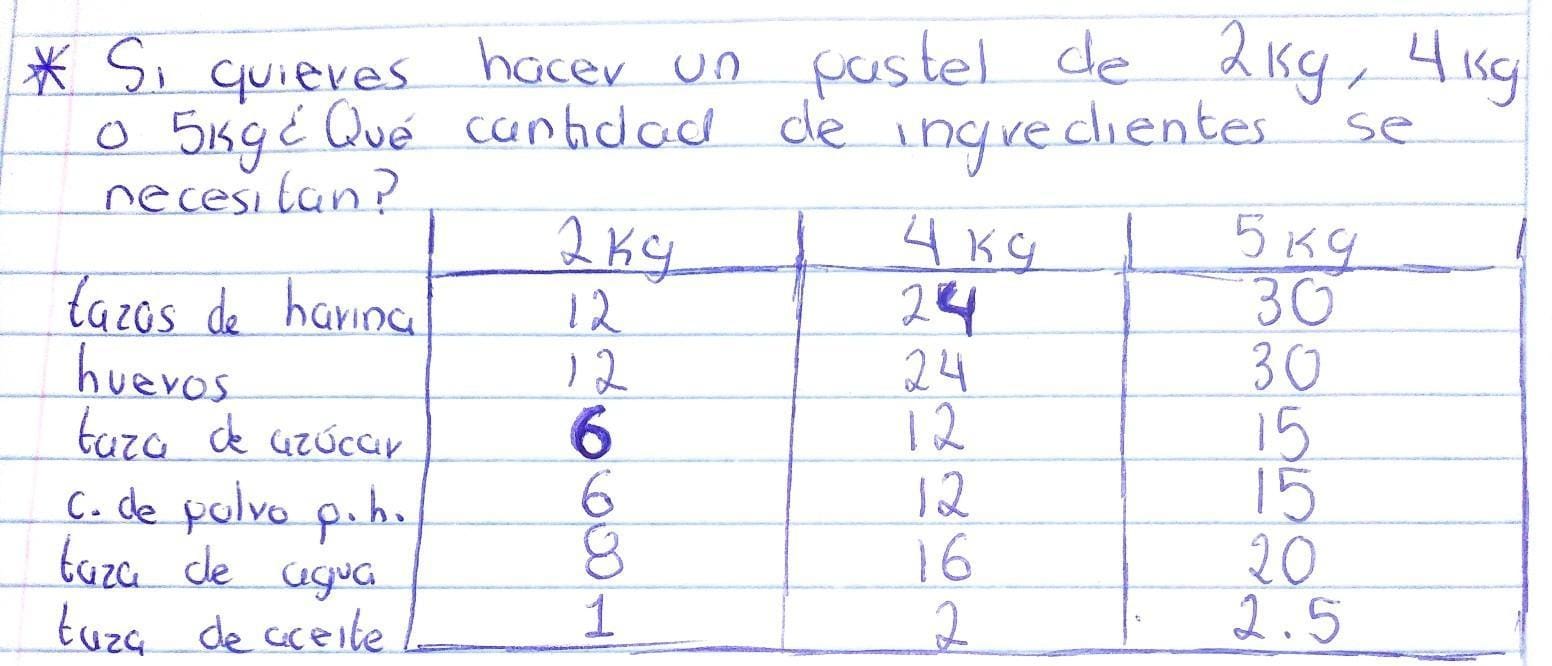 * Si quieres hacer un pastel de 2kg, 4kg
o 5kg ¿Qué cantidad de ingredientes se
necesitan?
2kg 4kg 5kg
tazas de harina 12 24 30
huevos 12 24 30
taza de azúcar 6 12 15
c. de polvo p.h. 6 12 15
taza de agua 8 16 20
taza de aceite 1 2 2.5